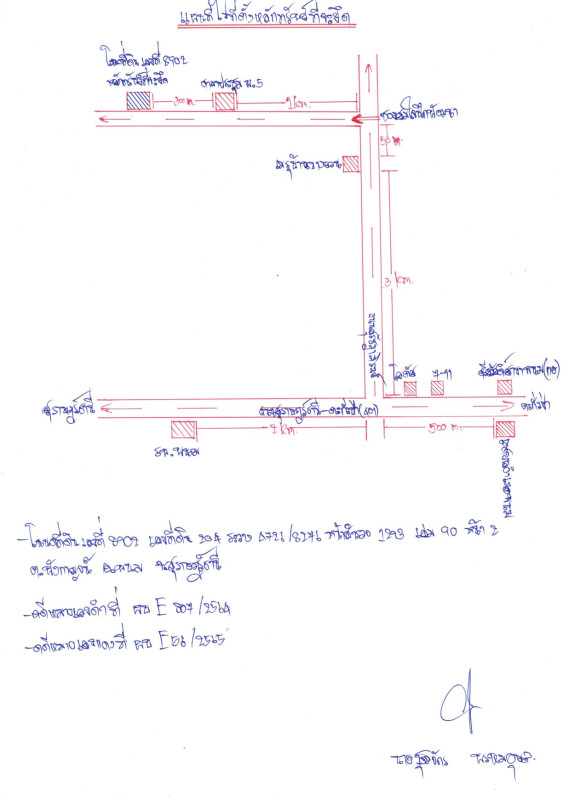 แผนที่ไปที่ตั้งหลักทรัพย์ที่จะยึด
โฉนดที่ดิน เลขที่ 8902
หลักทรัพย์ที่จะยึด
ศาลาประชุม ม.5
300 m.
1 km.
50 m.
3 km.
โลตัส
7-11
สุราษฎร์ธานี
ถนนสุราษฎร์ธานี-ตะกั่วป่า (401)
ตะกั่วป่า
2 km.
500 m.
สภ.พนม
-โฉนดที่ดิน เลขที่ 8902 เลขที่ดิน 204 ระวาง 4726 /8276 หน้าสำรวจ 1293 เล่ม 90 หน้า 2
อ.พนม จ.สุราษฎร์ธานี
-คดีหมายเลขดำที่ ผบ E 807/2564
-คดีหมายเลขแดงที่ ผบ E 56/2565